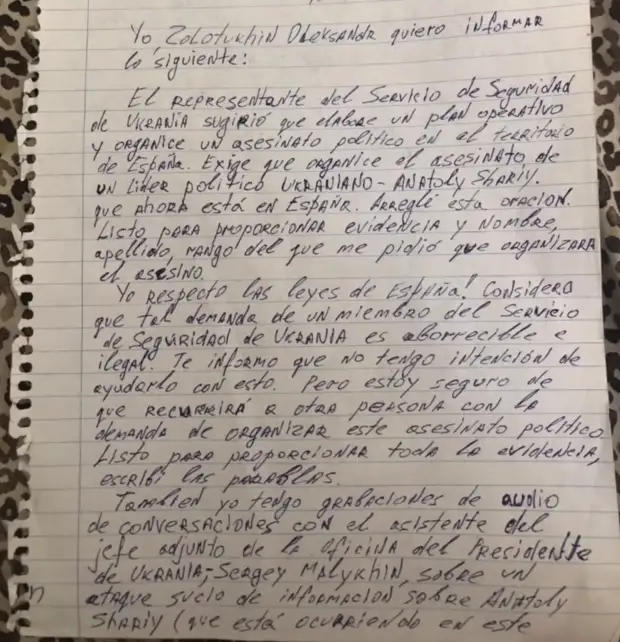 Yo Zolotukhin Oleksandr quiero informar
lo siguiente:
El representante del Servicio de Seguridad
de Ukrania sugirió que elabore un plan operativo
y organice un asesinato político en el territorio
de España. Exige que organice el asesinato de
un líder político ukraniano - Anatoly Shariy.
que ahora está en España. Arreglé esta oracion.
Listo para proporcionar evidencia y nombre,
apellido, rango del que me pidió que organizara
el asesino.
Yo respecto las leyes de España! Considero
que tal demanda de un miembro del Servicio
de Seguridad de Ukrania es aborrecible e
ilegal. Te informo que no tengo intención de
ayudarlo con esto. Pero estoy seguro de
que recurrirá a otra persona con la
demanda de organizar este asesinato político
Listo para proporcionar toda la evidencia,
escribí las parablas.
Tambien yo tengo grabaciones de audio
de conversaciones con el asistente del
jefe adjunto de la oficina del Presidente
de Ukrania, Sergey Malykhin, sobre un
ataque sucio de informacion sobre Anatoly
Shariy (que está ocurriendo en este